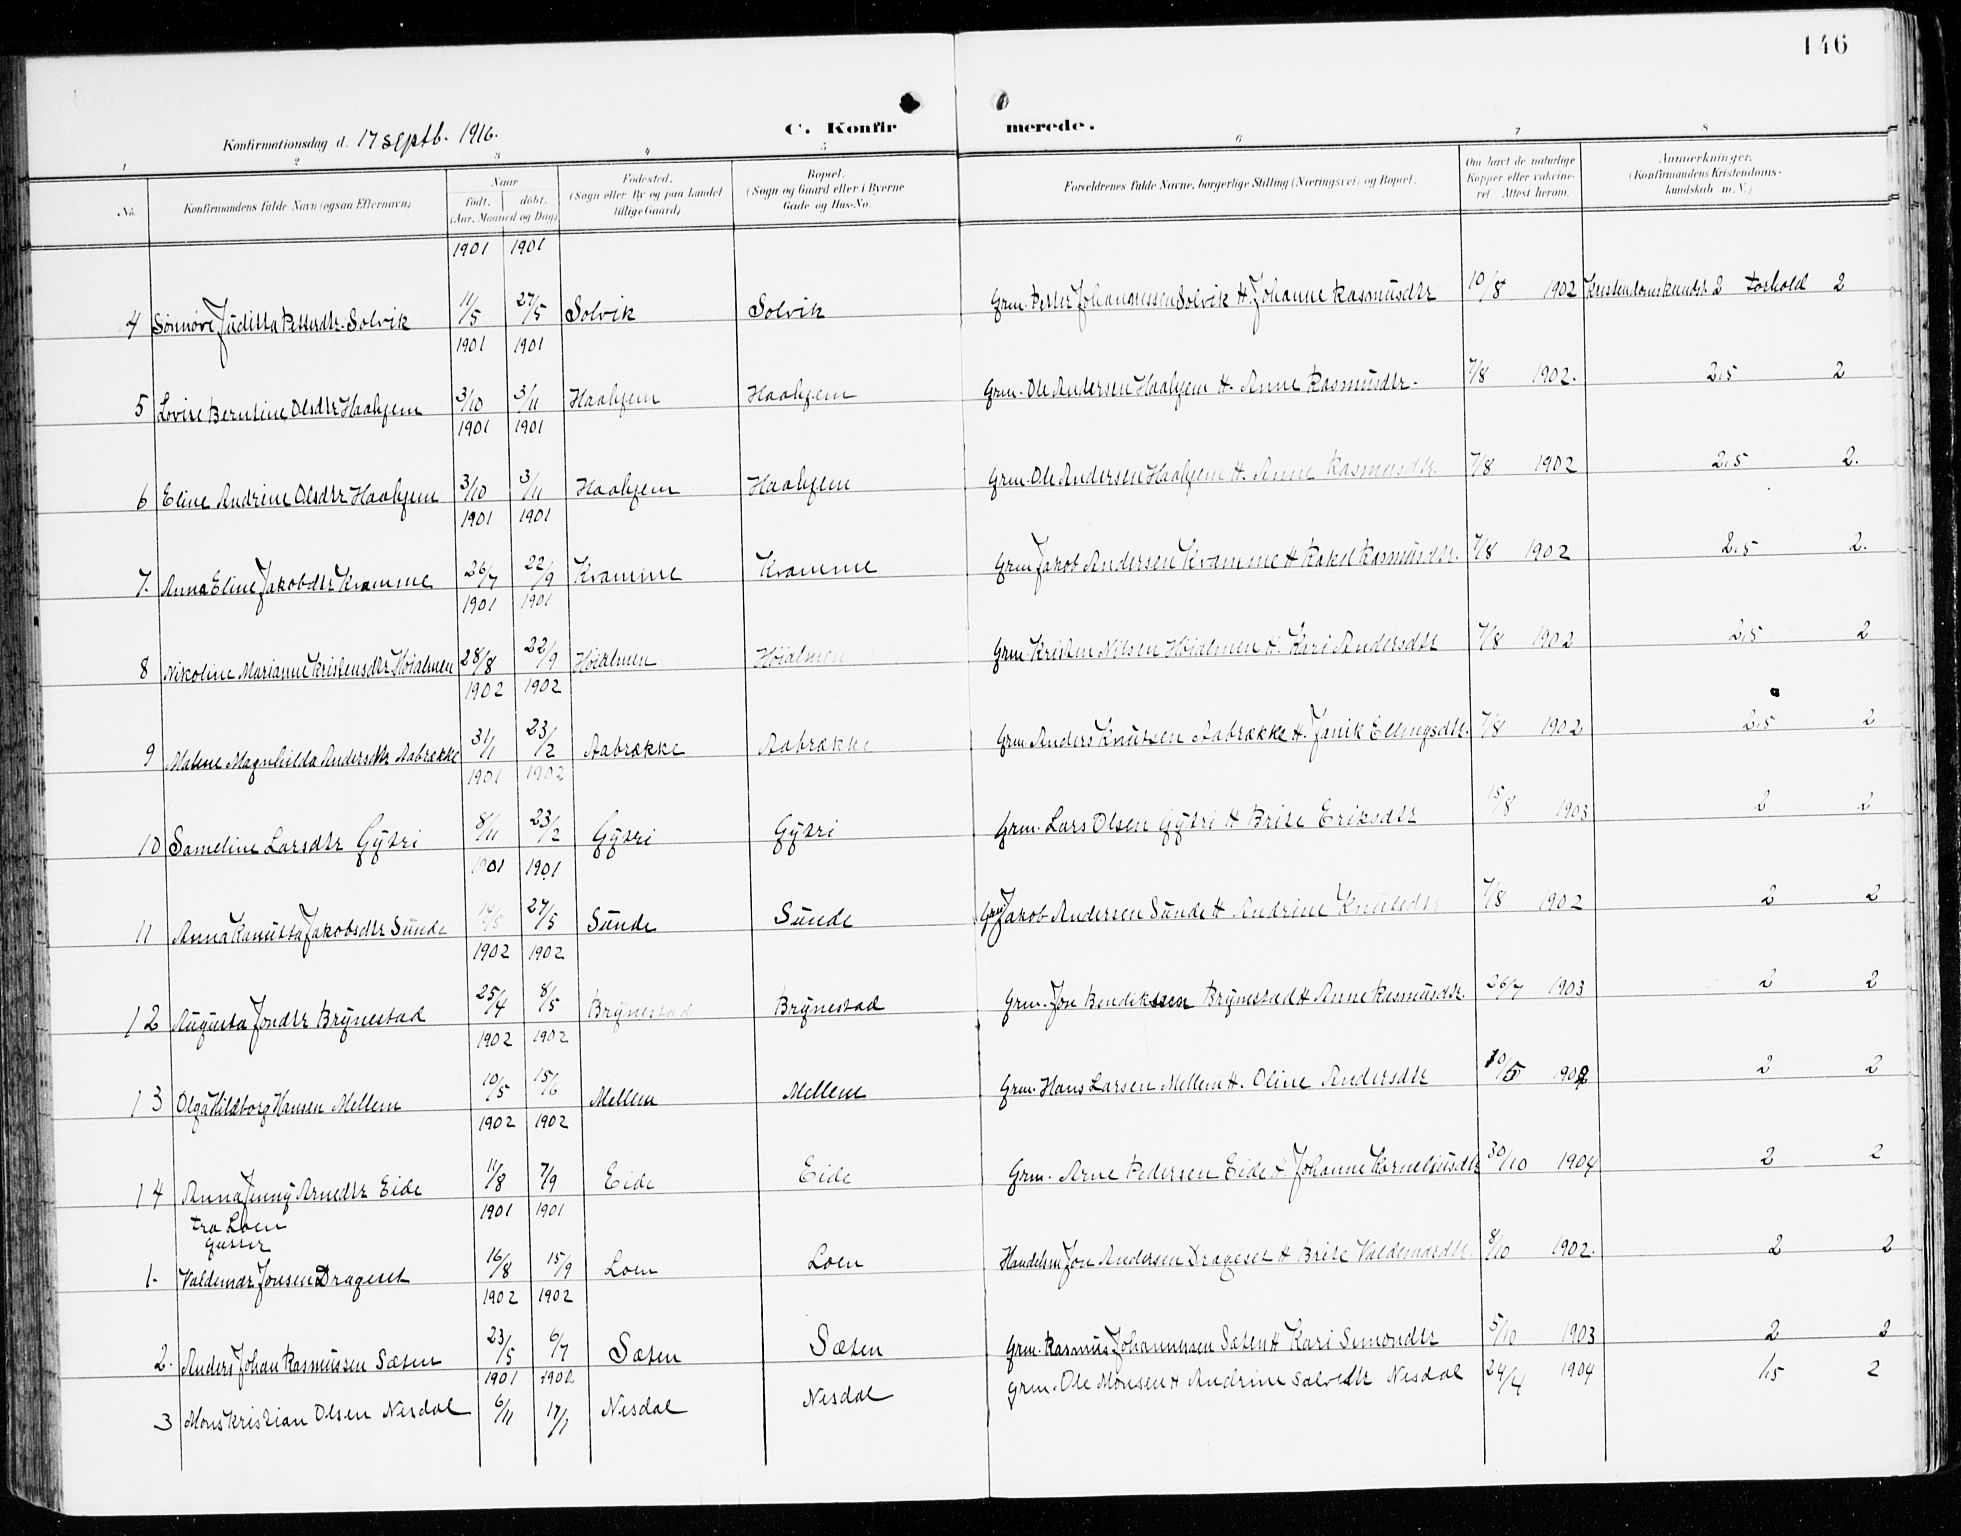 146
Konfirmationsdag d. 17 septb. 1916.
C. Konfirmerede.
1 2 3 4 5 6 7 8
No. Konfirmandens fulde Navn (ogsaa Efternavn) Naar født. døbt. (Aar, Maaned og Dag) Fødested. (Sogn eller By og paa Landet tillige Gaard) Bopæl. (Sogn og Gaard eller i Byerne Gade og Hus-No. Forældrenes fulde Navne, borgerlige Stilling (Næringsvei) og Bopæl. Om havt de naturlige Kopper eller vaccineret. Attest herom. Anmærkninger. (Konfirmandens Kristendomskundskab m. V.)
1901 1901
4 Sønnøve Juditta Pettersdtr. Solvik 11/5 27/5 Solvik Solvik Grm. Petter Johannessen Solvik H. Johanne Rasmusdtr 10/8 1902 Kristendomskundsk 2 Forhold 2
1901 1901
5 Lovise Berntine Olsdtr Haahjem 3/10 3/11 Haahjem Haahjem Grm. Ole Andersen Haahjem H. Anne Rasmusdtr. 7/8 1902. 2,5 2
1901 1901
6 Eline Andrine Olsdtr Haahjem 3/10 3/11 Haahjem Haahjem Grm. Ole Andersen Haahjem H. Anne Rasmusdtr. 7/8 1902 2,5 2.
1901 1901
7. Anna Eline Jakobsdtr Kvamme 26/7 22/9 Kvamme Kvamme Grm Jakob Andersen Kvamme H Rakel Rasmusdtr. 7/8 1902 2,5 2.
1901 1901
8 Nikoline Marianne Kristensdtr Høialmen 28/8 22/9 Høialmen Høialmen Grm. Kristen Nilsen Høialmen H. Kari Andersdtr 7/8 1902 2,5 2
1902 1902
9 Malene Magnhilda Andersdtr Aabrække 31/1 23/2 Aabrække Aabrække Grm. Anders Knutsen Aabrække H. Janik Ellingsdtr. 7/8 1902 2,5 2
1901 1902
10 Sameline Larsdtr Gytri 8/11 23/2 Gytri Gytri Grm. Lars Olsen Gytri H Brite Eriksdtr 15/8 1903 2 2
1901 1901
11 Anna Kanutta Jakobsdtr Sunde 14/5 27/5 Sunde Sunde Grm Jakob Andersen Sunde H Andrine Knutsdtr 7/8 1902 2 2
1902 1902
12 Augusta Jondtr Brynestad 25/4 8/5 Brynestad Brynestad Grm. Jon Bendikssen Brynestad H Anne Rasmusdtr. 26/7 1903 2 2
1902 1902
13 Olga Hildborg Hansen Mellem 10/5 15/6 Mellem Mellem Grm. Hans Larsen Mellem H. Oline Andersdtr 10/5 1902 2 2
1902 1902
14 Anna Jenny Arnedtr Eide 11/8 7/9 Eide Eide Grm. Arne Pedersen Eide H Johanne Korneliusdtr 30/10 1904 2 2
1901 1901
fra Loen
gutter
1. Valdemar Jonsen Drageset 16/8 15/9 Loen Loen Handelsm Jon Andersen Drageset H Brite Valdemarsdtr. 8/10 1902. 2 2
1902 1902
2. Anders Johan Rasmussen Sæten 23/5 6/7 Sæten Sæten Grm. Rasmus Johannessen Sæten H Kari Simondtr 5/10 1903 2 2
1901 1902
3 Mons Kristian Olsen Nesdal 6/11 17/1 Nesdal Nesdal Grm. Ole Monsen H Andrine Salvesdtr Nesdal 24/4 1904 1,5 2